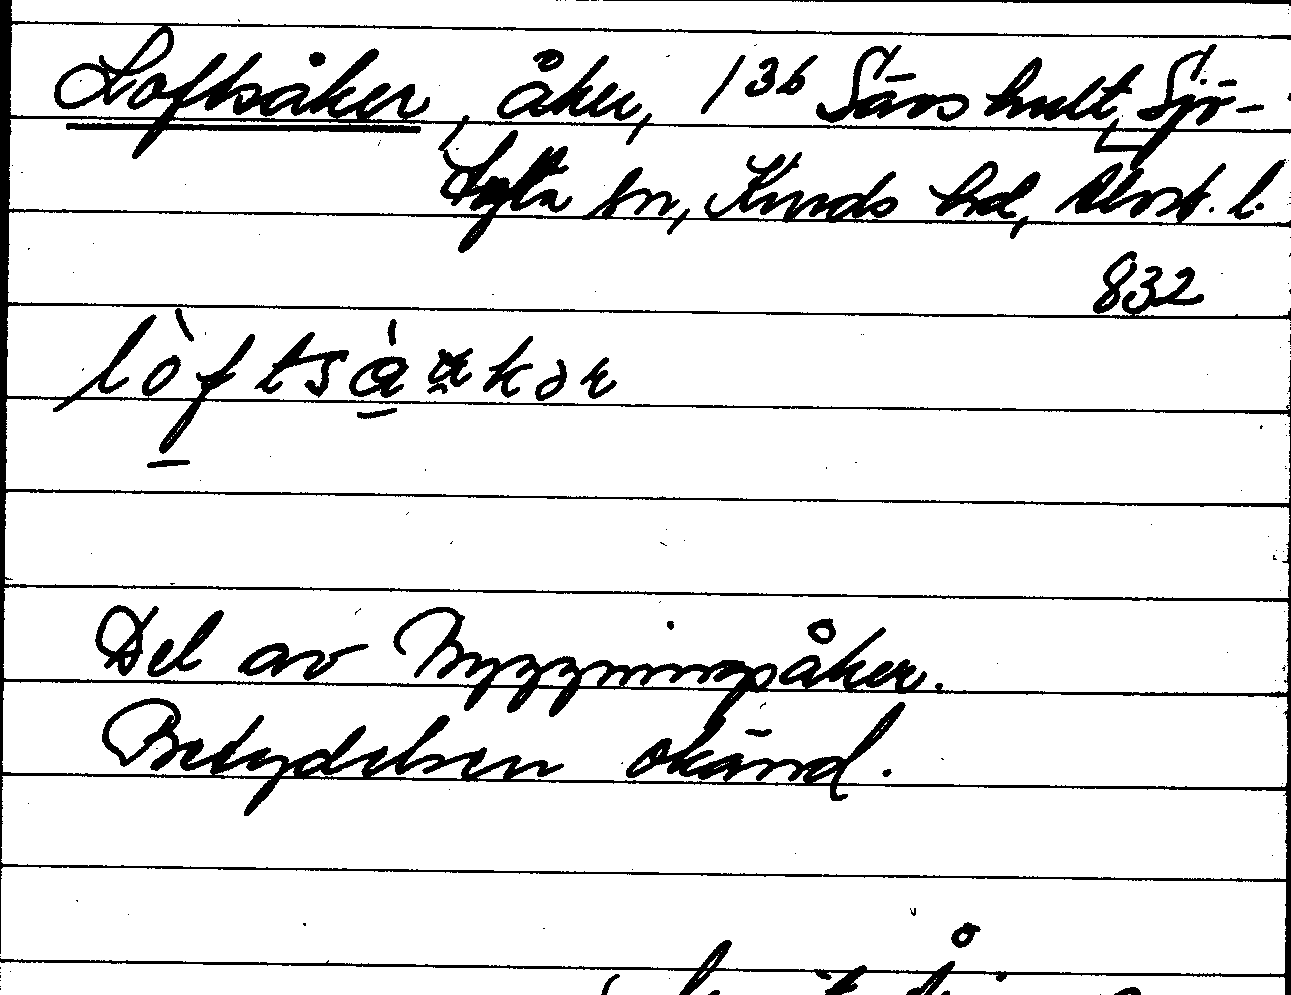 Loftsåker, åker, 1³⁶ Särshult, Sjö-
hylta sn, Kinds hd, Älvsb. l.
832
lòftsàkər
Del av Byggningsåker.
Betydelsen okänd.